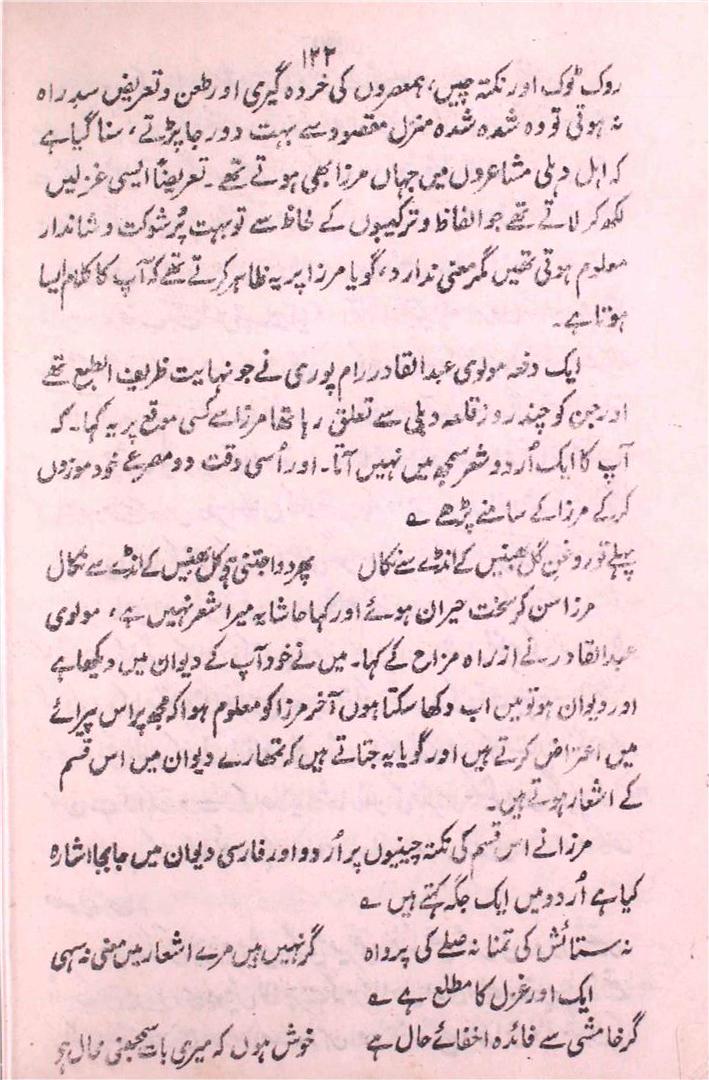 ۱۲۲
روک ٹوک اور نکتہ چیں، ہمعصروں کی خردہ گیری اور طعن و تعریض سدِ راہ
نہ ہوتی تو وہ شدہ شدہ منزل مقصود سے بہت دور جا پڑتے، سنا گیا ہے
کہ اہل دہلی مشاعروں میں جہاں مرزا بھی ہوتے تھے۔ تعریضاً ایسی غزلیں
لکھ کر لاتے تھے جو الفاظ و ترکیبوں کے لحاظ سے تو بہت پُرشوکت و شاندار
معلوم ہوتی تھیں مگر معنی ندارد، گویا مرزا پر یہ ظاہر کرتے تھے کہ آپ کا کلام ایسا
ہوتا ہے۔
ایک دفعہ مولوی عبدالقادر رام پوری نے جو نہایت ظریف الطبع تھے
اور جن کو چند روز قلعہ دہلی سے تعلق رہا تھا مرزا سے کسی موقع پر یہ کہا۔ کہ
آپ کا ایک اُردو شعر سمجھ میں نہیں آتا۔ اور اُسی وقت دو مصرعے خود موزوں
کر کے مرزا کے سامنے پڑھے ؎
پہلے تو روغن گل بھینس کے انڈے سے نکال پھر دوا جتنی ہے کل بھینس کے انڈے سے نکال
مرزا سن کر سخت حیران ہوئے اور کہا حاشا یہ میرا شعر نہیں ہے، مولوی
عبدالقادر نے از راہ مزاح کے کہا۔ میں نے خود آپ کے دیوان میں دیکھا ہے
اور دیوان ہو تو میں اب دکھا سکتا ہوں آخر مرزا کو معلوم ہوا کہ مجھ پر اس پیرائے
میں اعتراض کرتے ہیں اور گویا یہ جتاتے ہیں کہ تمھارے دیوان میں اس قسم
کے اشعار ہوتے ہیں۔
مرزا نے اس قسم کی نکتہ چینیوں پر اُردو اور فارسی دیوان میں جابجا اشارہ
کیا ہے اُردو میں ایک جگہ کہتے ہیں ؎
نہ ستائش کی تمنا نہ صلے کی پرواہ گر نہیں ہیں مرے اشعار میں معنی نہ سہی
ایک اور غزل کا مطلع ہے ؎
گر خامشی سے فائدہ اخفائے حال ہے خوش ہوں کہ میری بات سمجھنی محال ہے